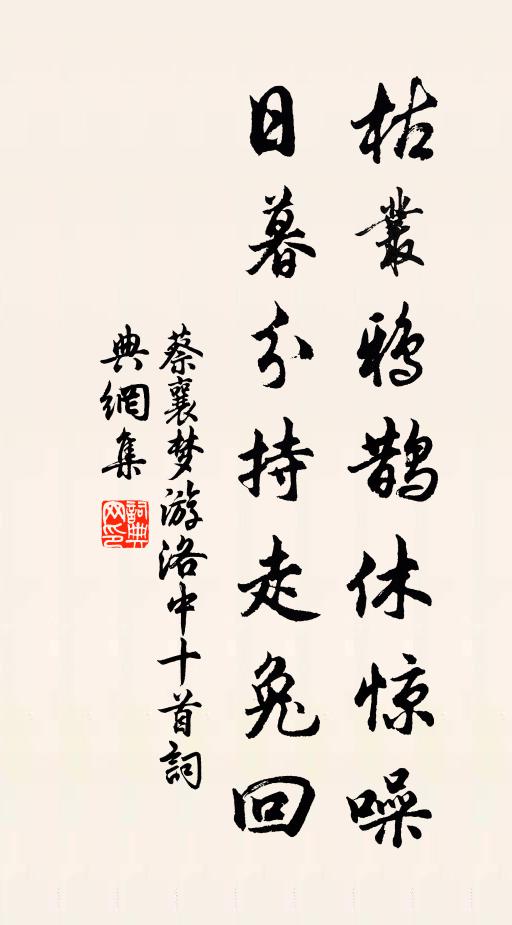 枯叢鴉鵲休惊噪
日暮分持走兔回
蔡襄梦游洛中十首詞
典網集
詞典网印